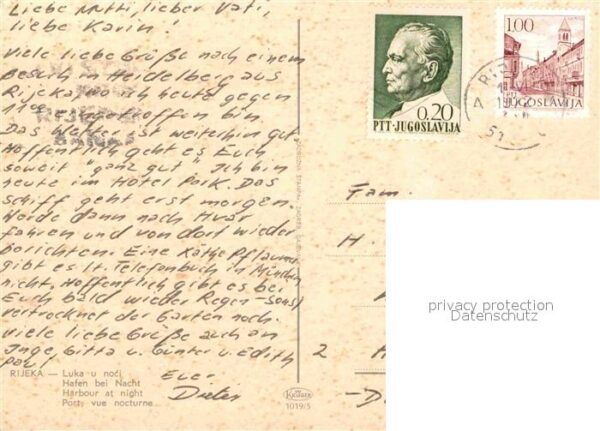 Liebe Mutti, lieber Vati,
liebe Karin!
Viele liebe Grüße nach einem
Besuch in Heidelberg aus
Rijeka, wo ich heute gegen
eingetroffen bin.
Das Wetter ist weiterhin gut.
Hoffentlich geht es Euch
soweit "ganz gut". Ich bin
heute im Hotel Park. Das
Schiff geht erst morgen.
Werde dann nach Hvar
fahren und von dort wieder
berichten. Eine Käthe Pflaume
gibt es lt. Telefonbuch in München
nicht. Hoffentlich gibt es bei
Euch bald wieder Regen - sonst
vertrocknet der Garten noch.
Viele liebe Grüße auch an
Inge, Gitta u. Günter u. Edith
Euer
Dieter
RIJEKA — Luka u noći
Hafen bei Nacht
Harbour at night
Port, vue nocturne
1019/5
0.20
PTT-JUGOSLAVIJA
1.00
JUGOSLAVIJA
RIJEKA
51
Fam.
H.
2
privacy protection
Datenschutz